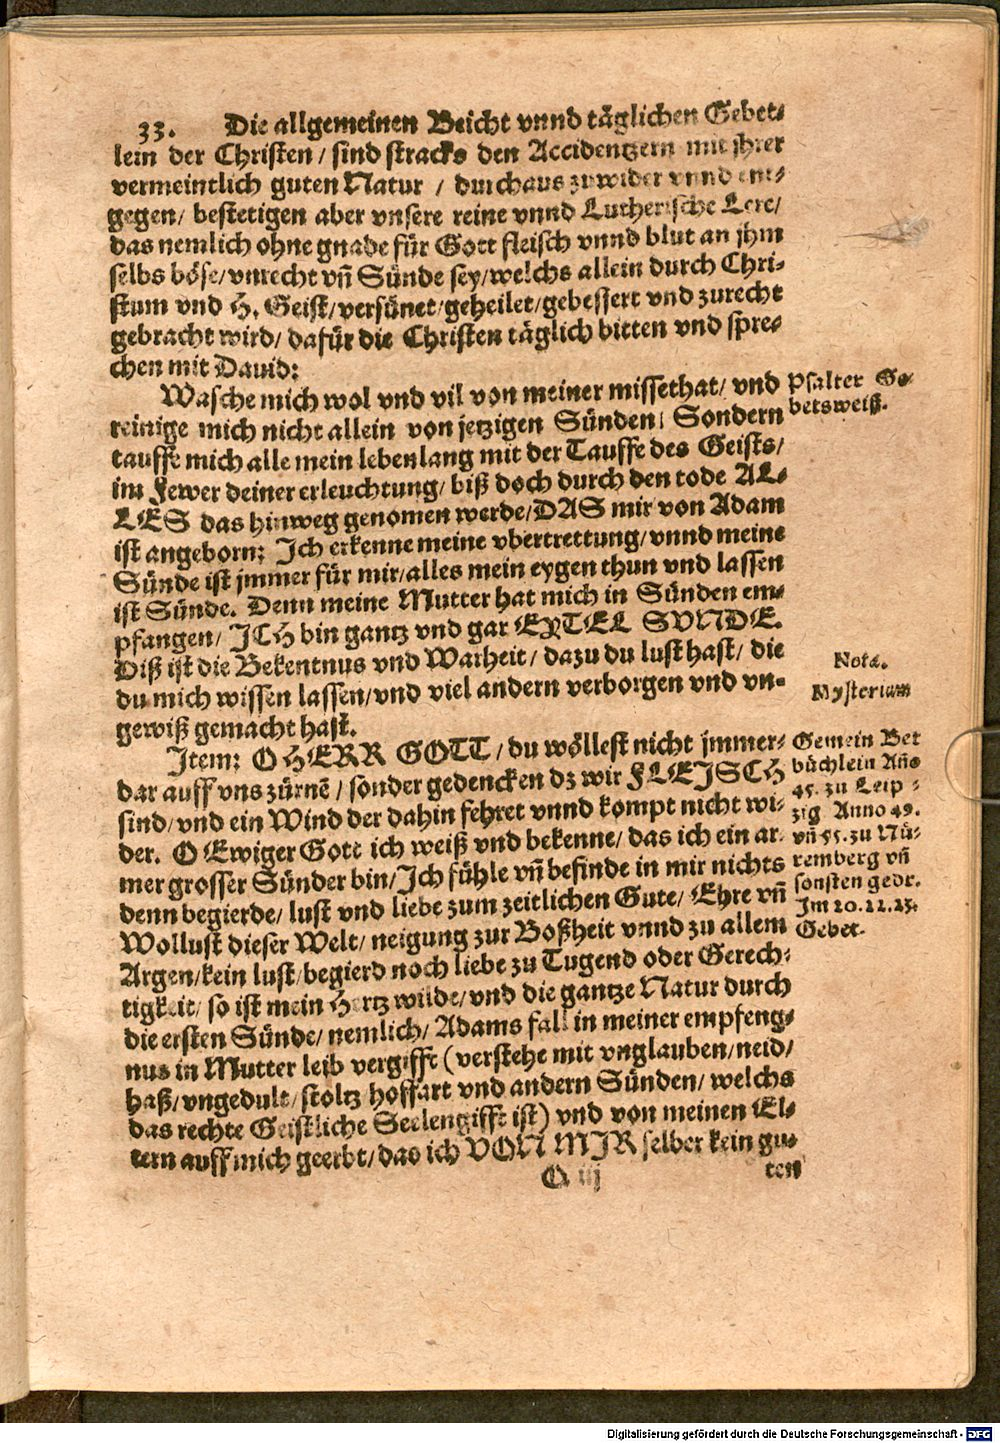 33. Die allgemeinen Beicht vnnd täglichen Gebet-
lein der Christen / sind stracks den Accidentzern mit jhrer
vermeintlich guten Natur / durchaus zuwider vnnd ent-
gegen / bestetigen aber vnsere reine vnnd Lutherische Lere /
das nemlich ohne gnade für Gott fleisch vnnd blut an jhm
selbs böse / vnrecht vñ Sünde sey / welchs allein durch Chri-
stum vnd H. Geist / versünet / geheilet / gebessert vnd zurecht
gebracht wird / dafür die Christen täglich bitten vnd spre-
chen mit Dauid:
Wasche mich wol vnd vil von meiner missethat / vnd
reinige mich nicht allein von jetzigen Sünden / Sondern
tauffe mich alle mein lebenlang mit der Tauffe des Geists /
im Fewer deiner erleuchtung / biß doch durch den tode AL-
LES das hinweg genomen werde / DAS mir von Adam
ist angeborn: Ich erkenne meine vbertrettung / vnnd meine
Sünde ist jmmer für mir / alles mein eygen thun vnd lassen
ist Sünde. Denn meine Mutter hat mich in Sünden em-
pfangen / ICH bin gantz vnd gar EYTEL SVNDE.
Diß ist die Bekentnus vnd Warheit / dazu du lust hast / die
du mich wissen lassen / vnd viel andern verborgen vnd vn-
gewiß gemacht hast.
Item: O HERR GOTT / du wöllest nicht jmmer-
dar auff vns zürnē / sonder gedencken dz wir FLEISCH
sind / vnd ein Wind der dahin fehret vnnd kompt nicht wi-
der. O Ewiger Gott ich weiß vnd bekenne / das ich ein ar-
mer grosser Sünder bin / Ich fühle vñ befinde in mir nichts
denn begierde / lust vnd liebe zum zeitlichen Gute / Ehre vñ
Wollust dieser Welt / neigung zur Boßheit vnnd zu allem
Argen / kein lust / begierd noch liebe zu Tugend oder Gerech-
tigkeit / so ist mein Hertz wilde / vnd die gantze Natur durch
die ersten Sünde / nemlich / Adams fall in meiner empfeng-
nus in Mutter leib vergifft (verstehe mit vnglauben / neid /
haß / vngedult / stoltz hoffart vnd andern Sünden / welchs
das rechte Geistliche Seelengifft ist) vnd von meinen El-
tern auff mich geerbt / das ich VON MIR selber kein gu-
O iij ten
Psalter Ge-
betsweiß.
Nota.
Mysterium
Gemein Bet
büchlein Año
45. zu Leip-
zig Anno 49.
vñ 55. zu Nü-
remberg vñ
sonsten gedr.
Im 20. 22. 25.
Gebet.
Digitalisierung gefördert durch die Deutsche Forschungsgemeinschaft - DFG